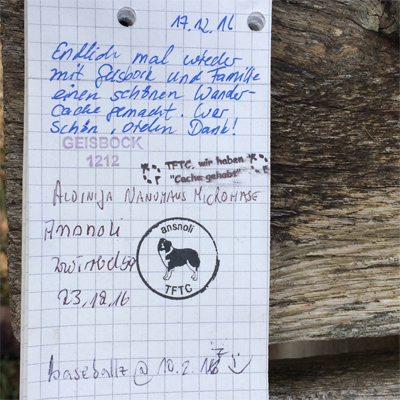 17.12.16
Endlich mal wieder
mit Geisbock und Familie
einen schönen Wander-
cache gemacht. War
schön, vielen Dank!
GEISBOCK
1212
TFTC, wir haben
"Cache gehabt"
ALDINIJA NANOMAUS MICROHASE
Ansnoli
23.12.16
ansnoli
TFTC
baseballz @ 10.2.